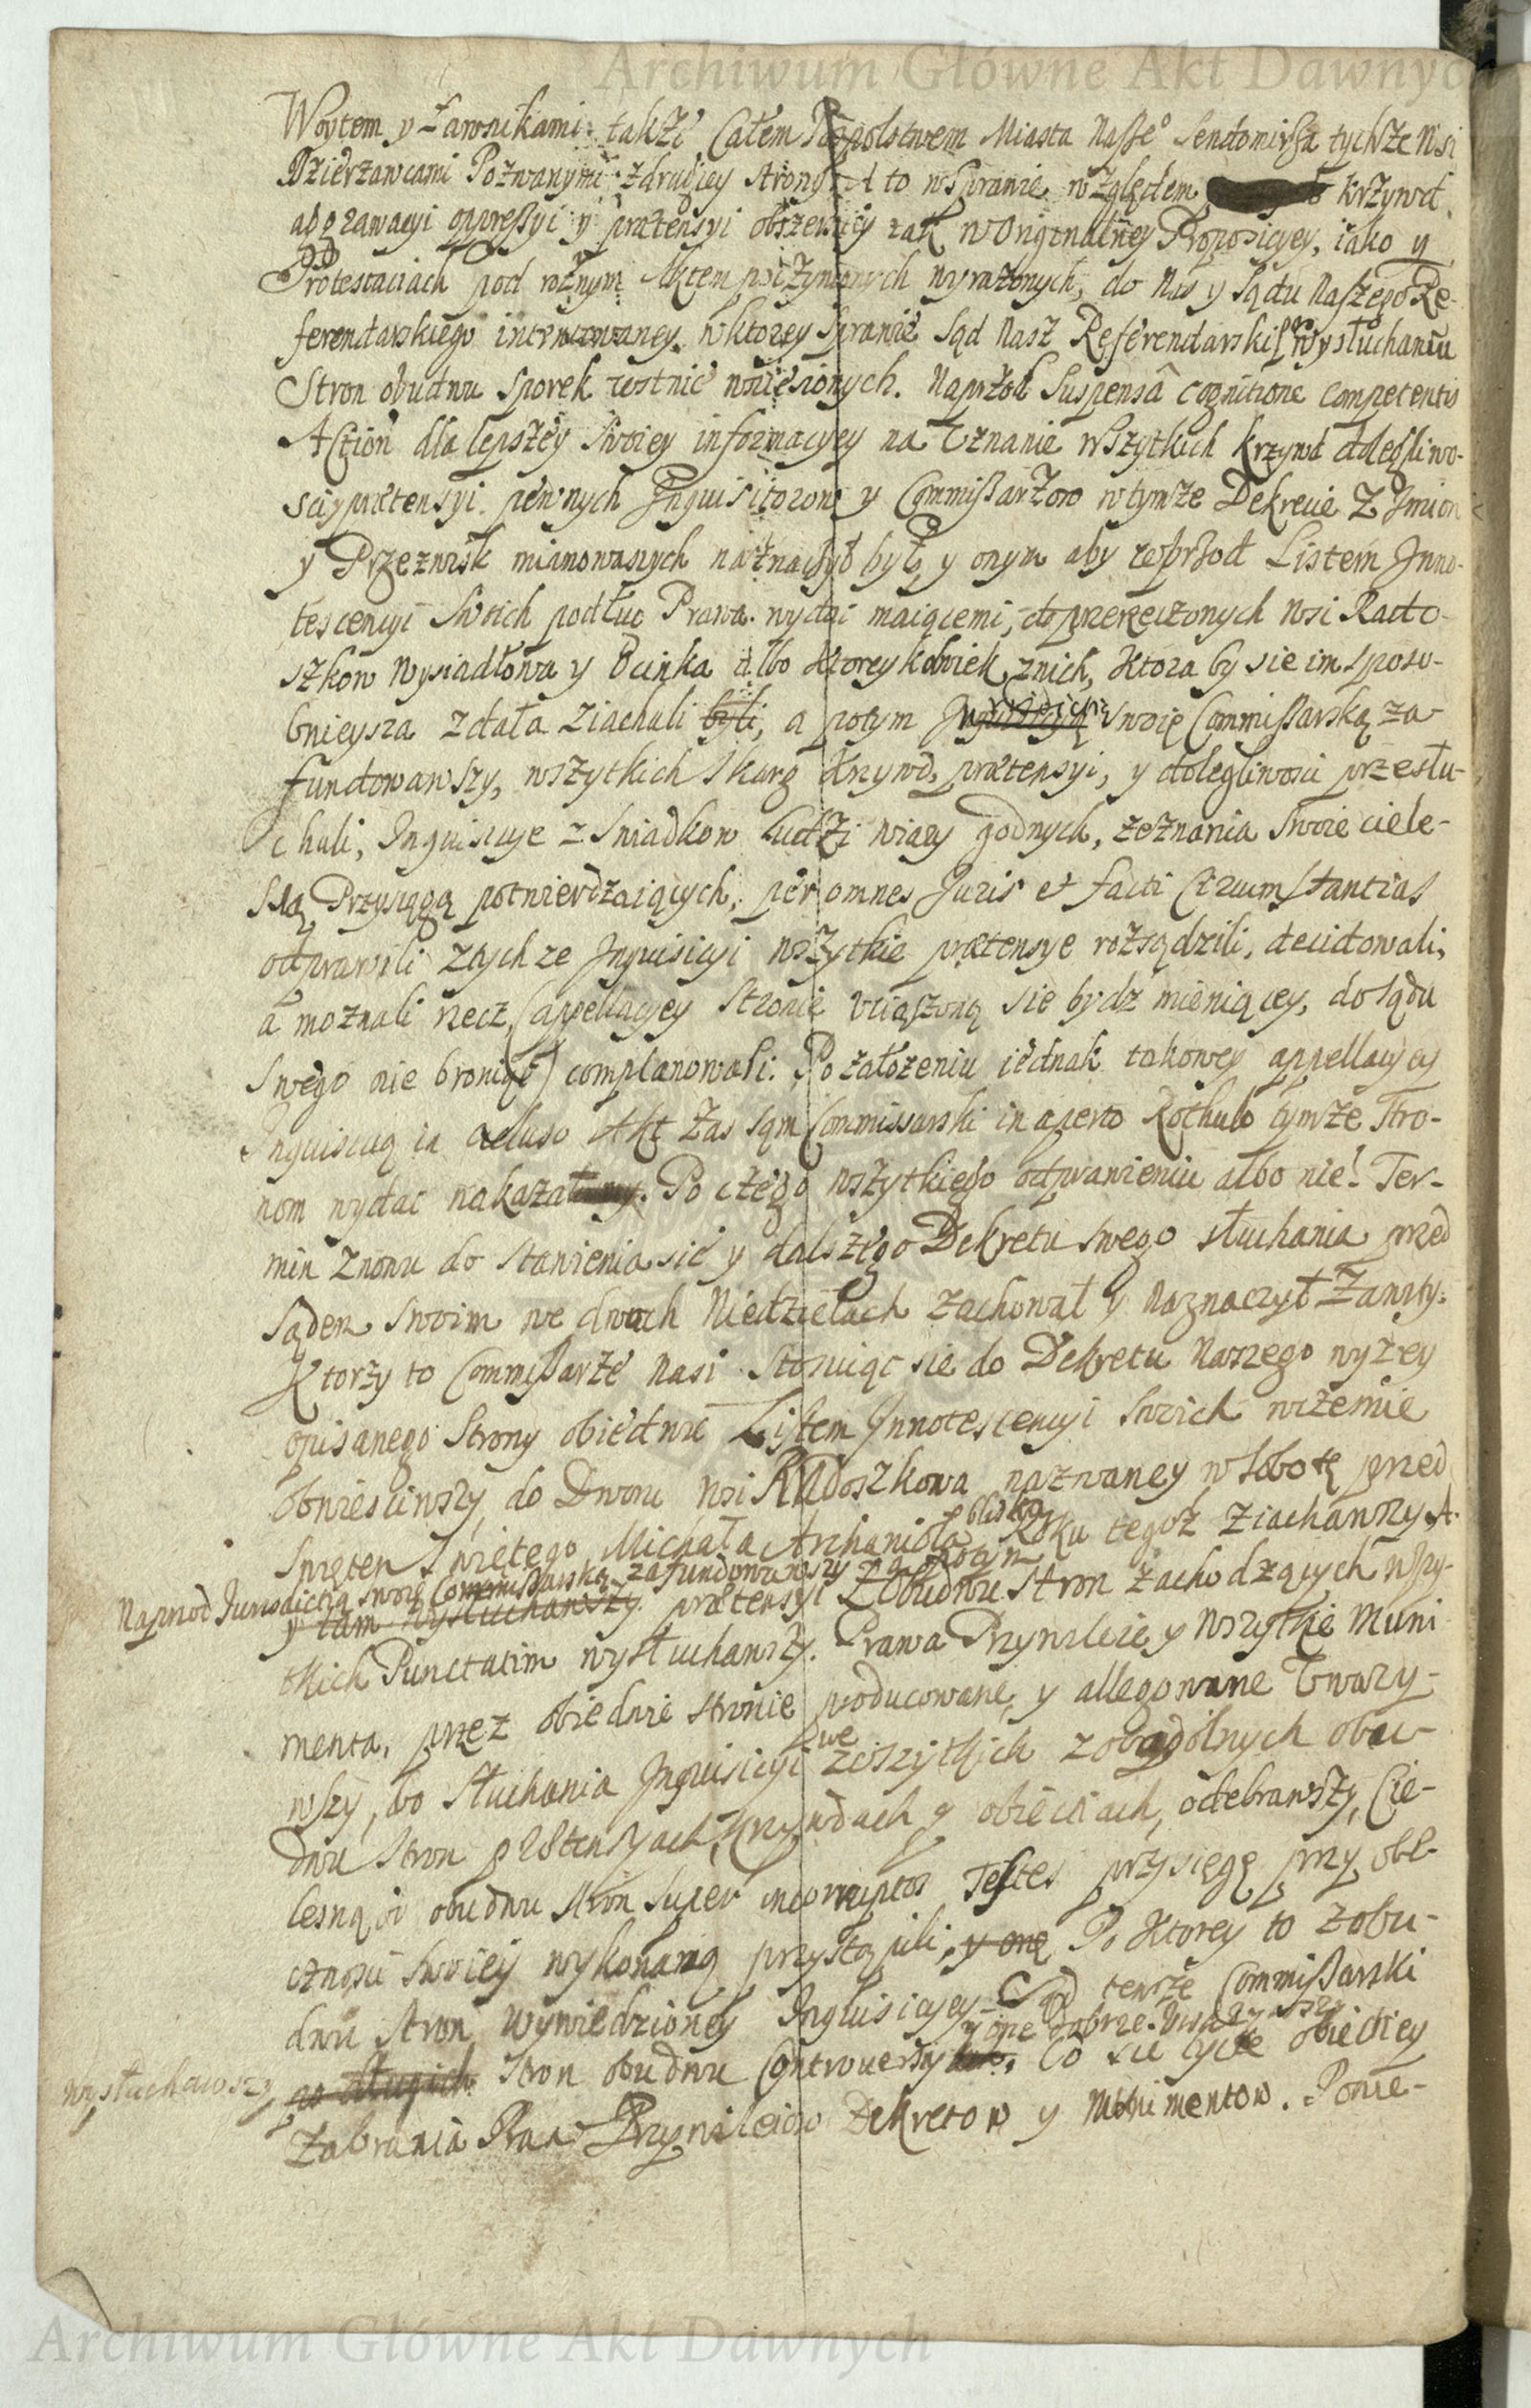 Archiwum Główne Akt Dawnych
Woytem y Ławnikami także Całem Pospolstwem Miasta Nasse° Sendomirza tychże Wsi
Dzierżawcami Pozwanymi zdrugiey strony A to wsprawie względem krzywd
aggrawacyi oppressyi y prætensyi obszerniey iak wOriginalney Propozicyey, iako y
Protestaciach pod rożnym Aktem poczynionych wyrażonych, do Nas y Sądu Naszego Re-
ferendarskiego intentowaney. wktorey Sprawie Sąd Nasz Referendarski po wysłuchaniu
Stron obudwu Sporek ustnie wniesionych. Naprzod Suspensâ cognitione competentis
Action dla lepszey Swoiey informacyey na Uznanie wszytkich krzywd dolegliwo-
sci y prætensyi pewnych Inquisitorow y Commissarzow wtymże Dekrecie Z Imion
y Przezwisk mianowanych naznaczył był, y onym aby wprzod Listem Inno-
tescencyi Swoich podług Prawa wydai maiącemi, do przerzeczonych Wsi Rado-
szkow Wysiadłowa y Ocinka albo ktoreykolwiek znich, ktora by sie im sposo-
bnieysza zdała ziachali byli, a potym Jurisdictią Swoię Commissarską za-
fundowawszy, wszytkich Skarg krzywd, prætensyi, y dolegliwosci przesłu-
chali, Inquisicye z Swiadkow Ludzi wiary godnych, zeznania Swoie ciele-
sną Przysięgą potwierdzaiących, per omnes Juris et facti Circumstantias
odprawili ztychze Inquisicyi wszytkie prætensye rozsądzili, decidowali,
a moznali rzecz, (appellacyey Stronie uciązoną sie bydz mieniącey, do Sądu
Swego nie broniąc) complanowali: Po założeniu iednak takowey appellacyey
Inquisicią in cluso Akt zas Sąm Commissarski in aperto Rothulo tymże Stro-
nom wydac nakazał. Po czego wszytkiego odprawieniu albo nie! Ter-
min znowu do Stawienia sie y dalszego Dekretu swego słuchania przed
Sądem Swoim we dwoch Niedzielach zachował y Naznaczył Zawity.
Ktorzy to Commissarze Nasi Stosuiąc sie do Dekretu Naszego wyżey
opisanego Strony obiedwie Listem Innotescencyi Swoich wczesnie
obwiesciwszy, do Dworu Wsi Radoszkowa nazwaney w Sobotę przed
Swięten Swiętego Michała Archanioła blisko Roku tegoż Ziachawszy A
Naprzod Jurisdictią Swoię Commissarską zafundowawszy potym
y tam wysłuchawszy prætensyi Zobudwu Stron zachodzących wszy-
tkich Punctatim wysłuchawszy. Prawa Przywileie y Wszytkie Muni
menta, przez obiedwie stronie producowane, y allegowane Uwazy-
wszy, do Słuchania Inquisicyi we wszytkich zobopolnych obu-
dwu Stron prætensyach, krzywdach y obiectiach, odebrawszy, Cie-
lesną od obudwu stron super incorruptos Testes przysięgę przy obe-
cznosci Swoiey wykonaną przystąpili, y onę Po ktorey to zobu-
dwu Stron Wywiedzioney Inquisicyey Sąd tenże Commissarski
y one dobrze Uwazywszy
wysłuchawszy Stron obudwu Controversyi Co sie tycze obiectiey
Zabrania Praw Przywileiow Dekretow y Munimentow. Ponie-
Archiwum Główne Akt Dawnych